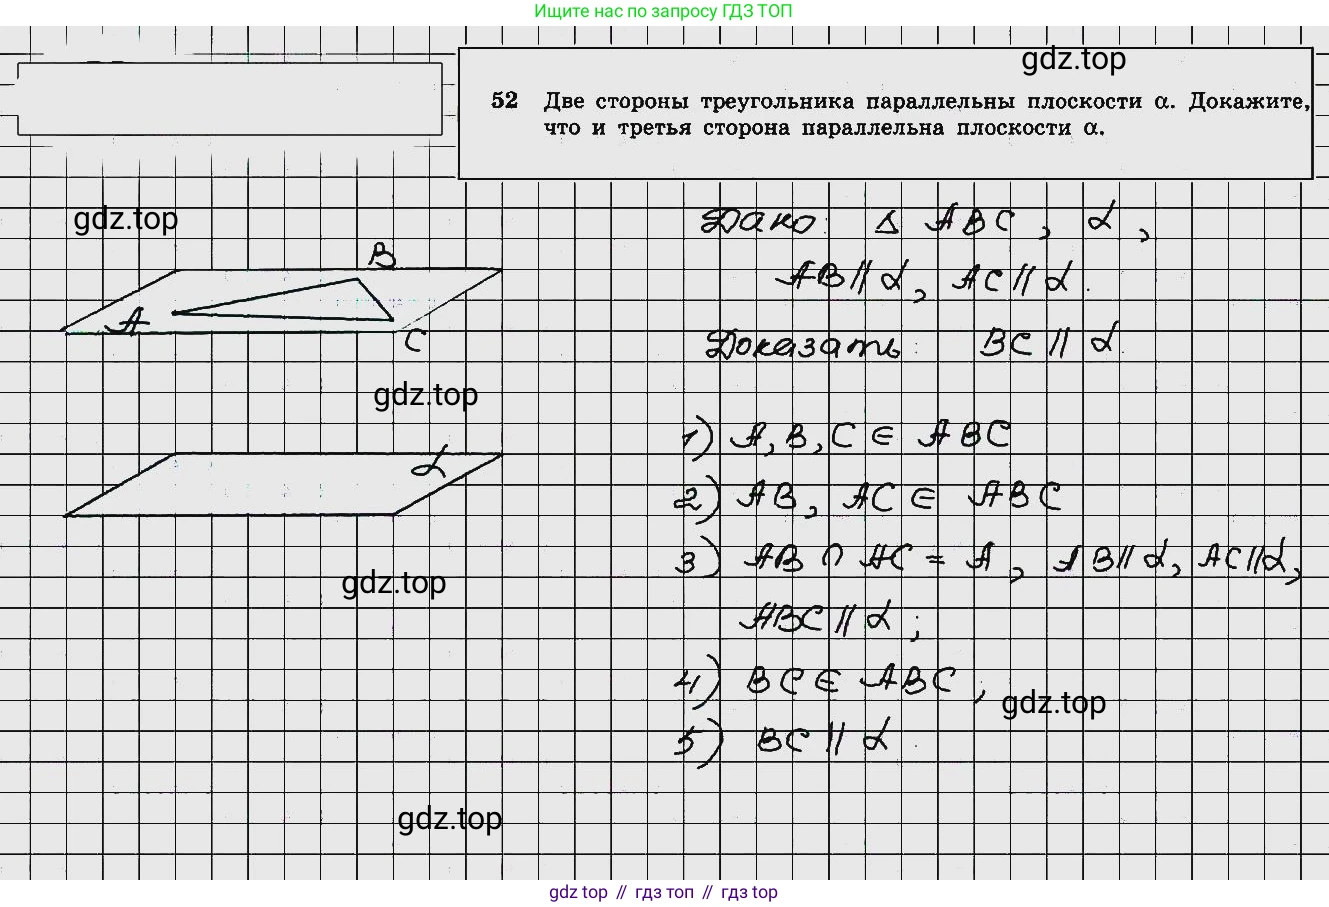 Ищите нас по запросу ГДЗ ТОП
gdz.top
52 Две стороны треугольника параллельны плоскости α. Докажите,
что и третья сторона параллельна плоскости α.
gdz.top
Дано: Δ ABC, α,
AB || α, AC || α.
Доказать: BC || α
B
A
C
gdz.top
1) A, B, C ∈ ABC
α
2) AB, AC ∈ ABC
3) AB ∩ AC = A, AB || α, AC || α,
gdz.top
ABC || α;
4) BC ∈ ABC;
gdz.top
5) BC || α.
gdz.top
gdz top // гдз топ // гдз top